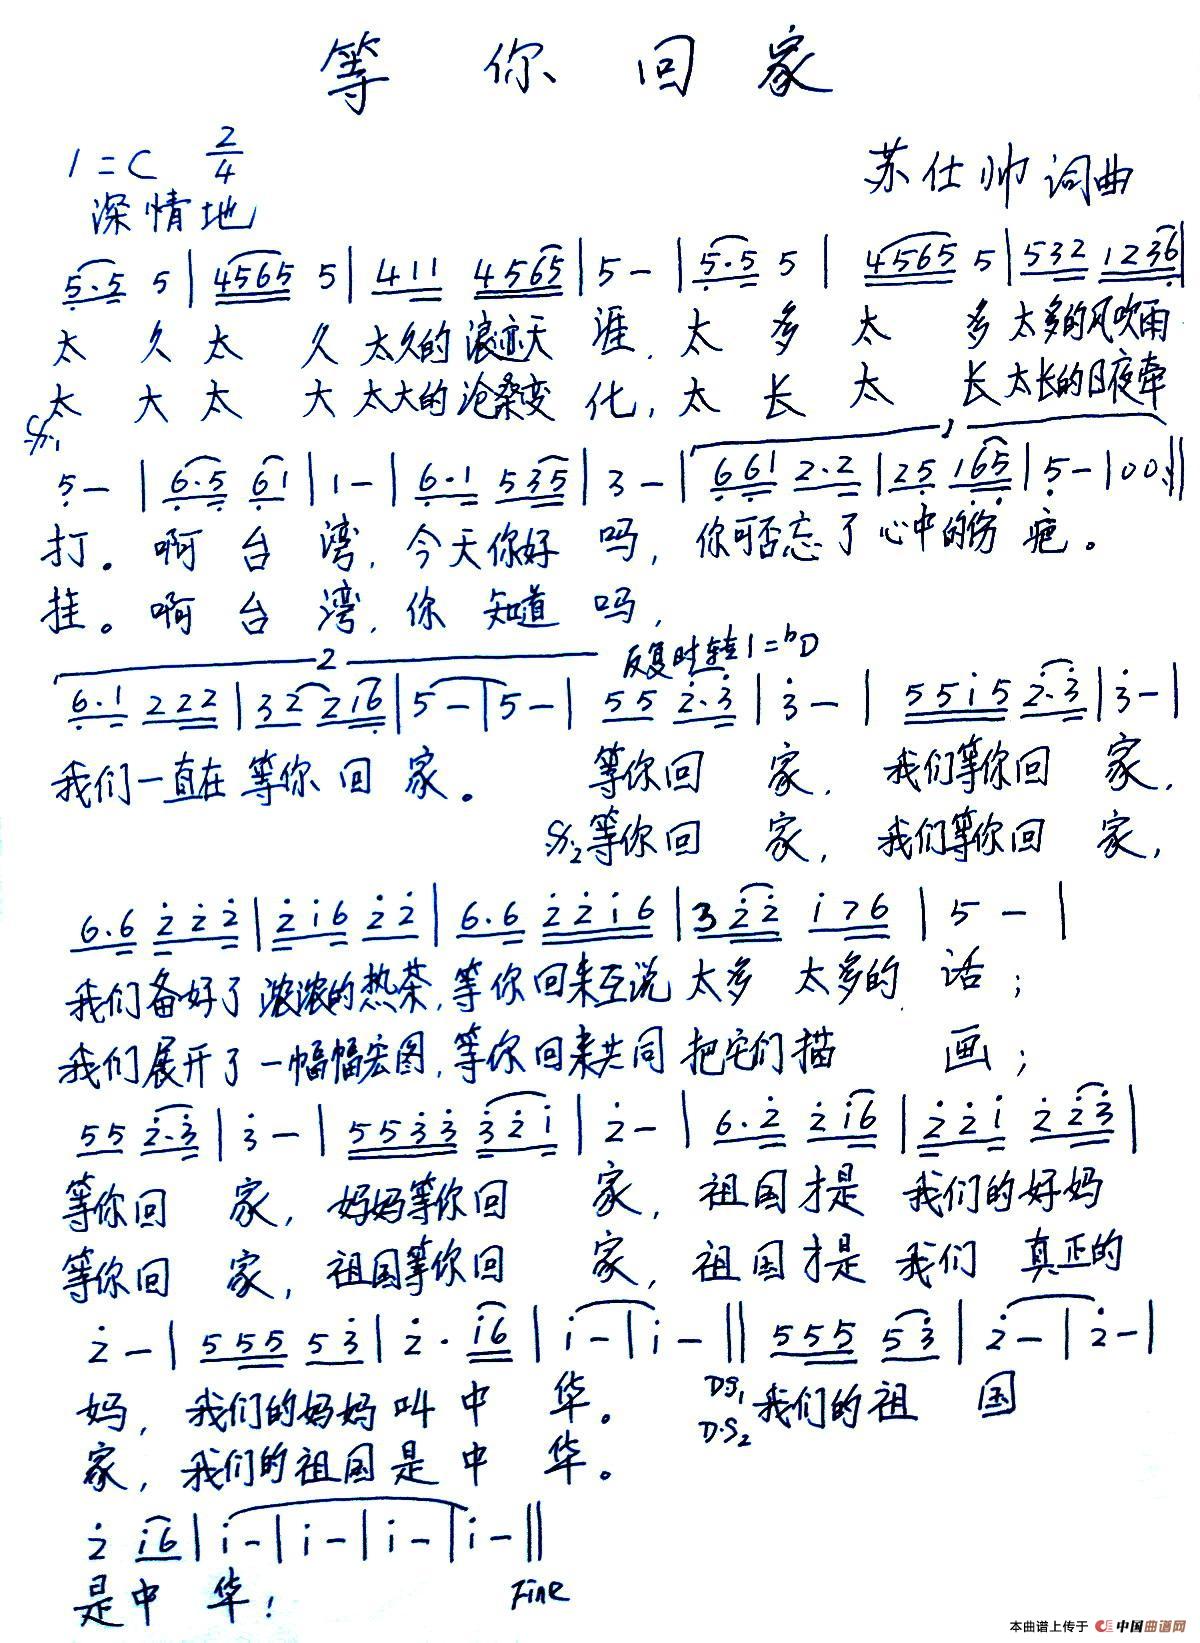 等你回家
1=C 2/4
苏仕帅 词曲
深情地
5·5 5 | 4565 5 | 411 4565 | 5 - | 5·5 5 | 4565 5 | 532 1236 |
太 久 太 久 太久的 浪迹天 涯, 太 多 太 多 太多的风吹雨
太 大 太 大 太大的 沧桑变 化, 太 长 太 长 太长的日夜牵
5 - | 6·5 61 | 1 - | 6·1 535 | 3 - | 661 2·2 | 25 165 | 5 - | 00 :||
打。 啊 台 湾, 今天你好 吗, 你可否忘了 心中的伤 疤。
挂。 啊 台 湾, 你 知道 吗,
2 反复时转1=bD
6·1 222 | 32 216 | 5 - | 5 - | 55 2·3 | 3 - | 5515 2·3 | 3 - |
我们一直在 等你 回 家。 等你回 家, 我们等你回 家,
等你回 家, 我们等你回 家,
6·6 222 | 216 22 | 6·6 2216 | 322 176 | 5 - |
我们备好了 浓浓的热茶, 等你回来互说 太多 太多的 话;
我们展开了 一幅幅宏图, 等你回来共同 把它们描 画;
55 2·3 | 3 - | 5533 321 | 2 - | 6·2 216 | 221 223 |
等你回 家, 妈妈等你回 家, 祖国才是 我们的好妈
等你回 家, 祖国等你回 家, 祖国才是 我们 真正的
2 - | 555 53 | 2· 16 | 1 - | 1 - || 555 53 | 2 - | 2 - |
妈, 我们的妈妈 叫 中 华。 D.S1 我们的祖 国
家, 我们的祖国 是 中 华。 D.S2
2 16 | 1 - | 1 - | 1 - | 1 - ||
是中 华! Fine
本曲谱上传于 中国曲谱网